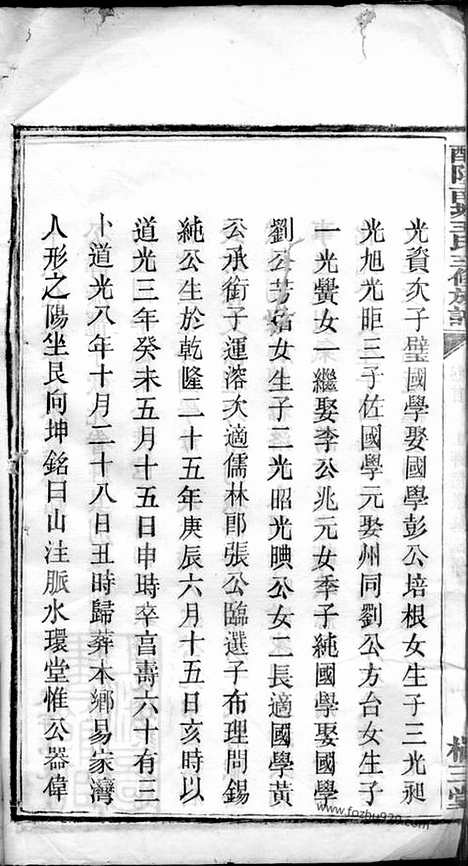 光資次子璧國學娶國學彭公培根女生子三光昶
光旭光昛三子佐國學元娶州同劉公方台女生子
一光黌女一繼娶李公兆元女季子純國學娶國學
劉公芳女生子二光昭光公女二長適國學黃
公承銜子運溶次適儒林郎張公臨選子布理問錫
純公生於乾隆二十五年庚辰六月十五日亥時以
道光三年癸未五月十五日申時卒享壽六十有三
卜道光八年十月二十八日丑時歸葬本鄉易家灣
人形之陽坐艮向坤銘曰山注脈水環堂惟公器偉
王氏三修族譜
三堂
www.fozhu920.com